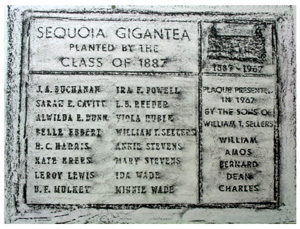 SEQUOIA GIGANTEA
PLANTED BY THE
CLASS OF 1887
J. A. BUCHANAN
SARAH E. CAVITT
ALWILDA E. DUNN
BELLE EGBERT
H. C. HARRIS
KATE KREBS
LEROY LEWIS
B. F. MULKEY
IRA F. POWELL
L. B. REEDER
VIOLA RUBLE
WILLIAM T. SELLERS
ANNIE STEVENS
MARY STEVENS
IDA WADE
MINNIE WADE
1887-1962
PLAQUE PRESENTED
IN 1962
BY THE SONS OF
WILLIAM T. SELLERS
WILLIAM
AMOS
BERNARD
DEAN
CHARLES